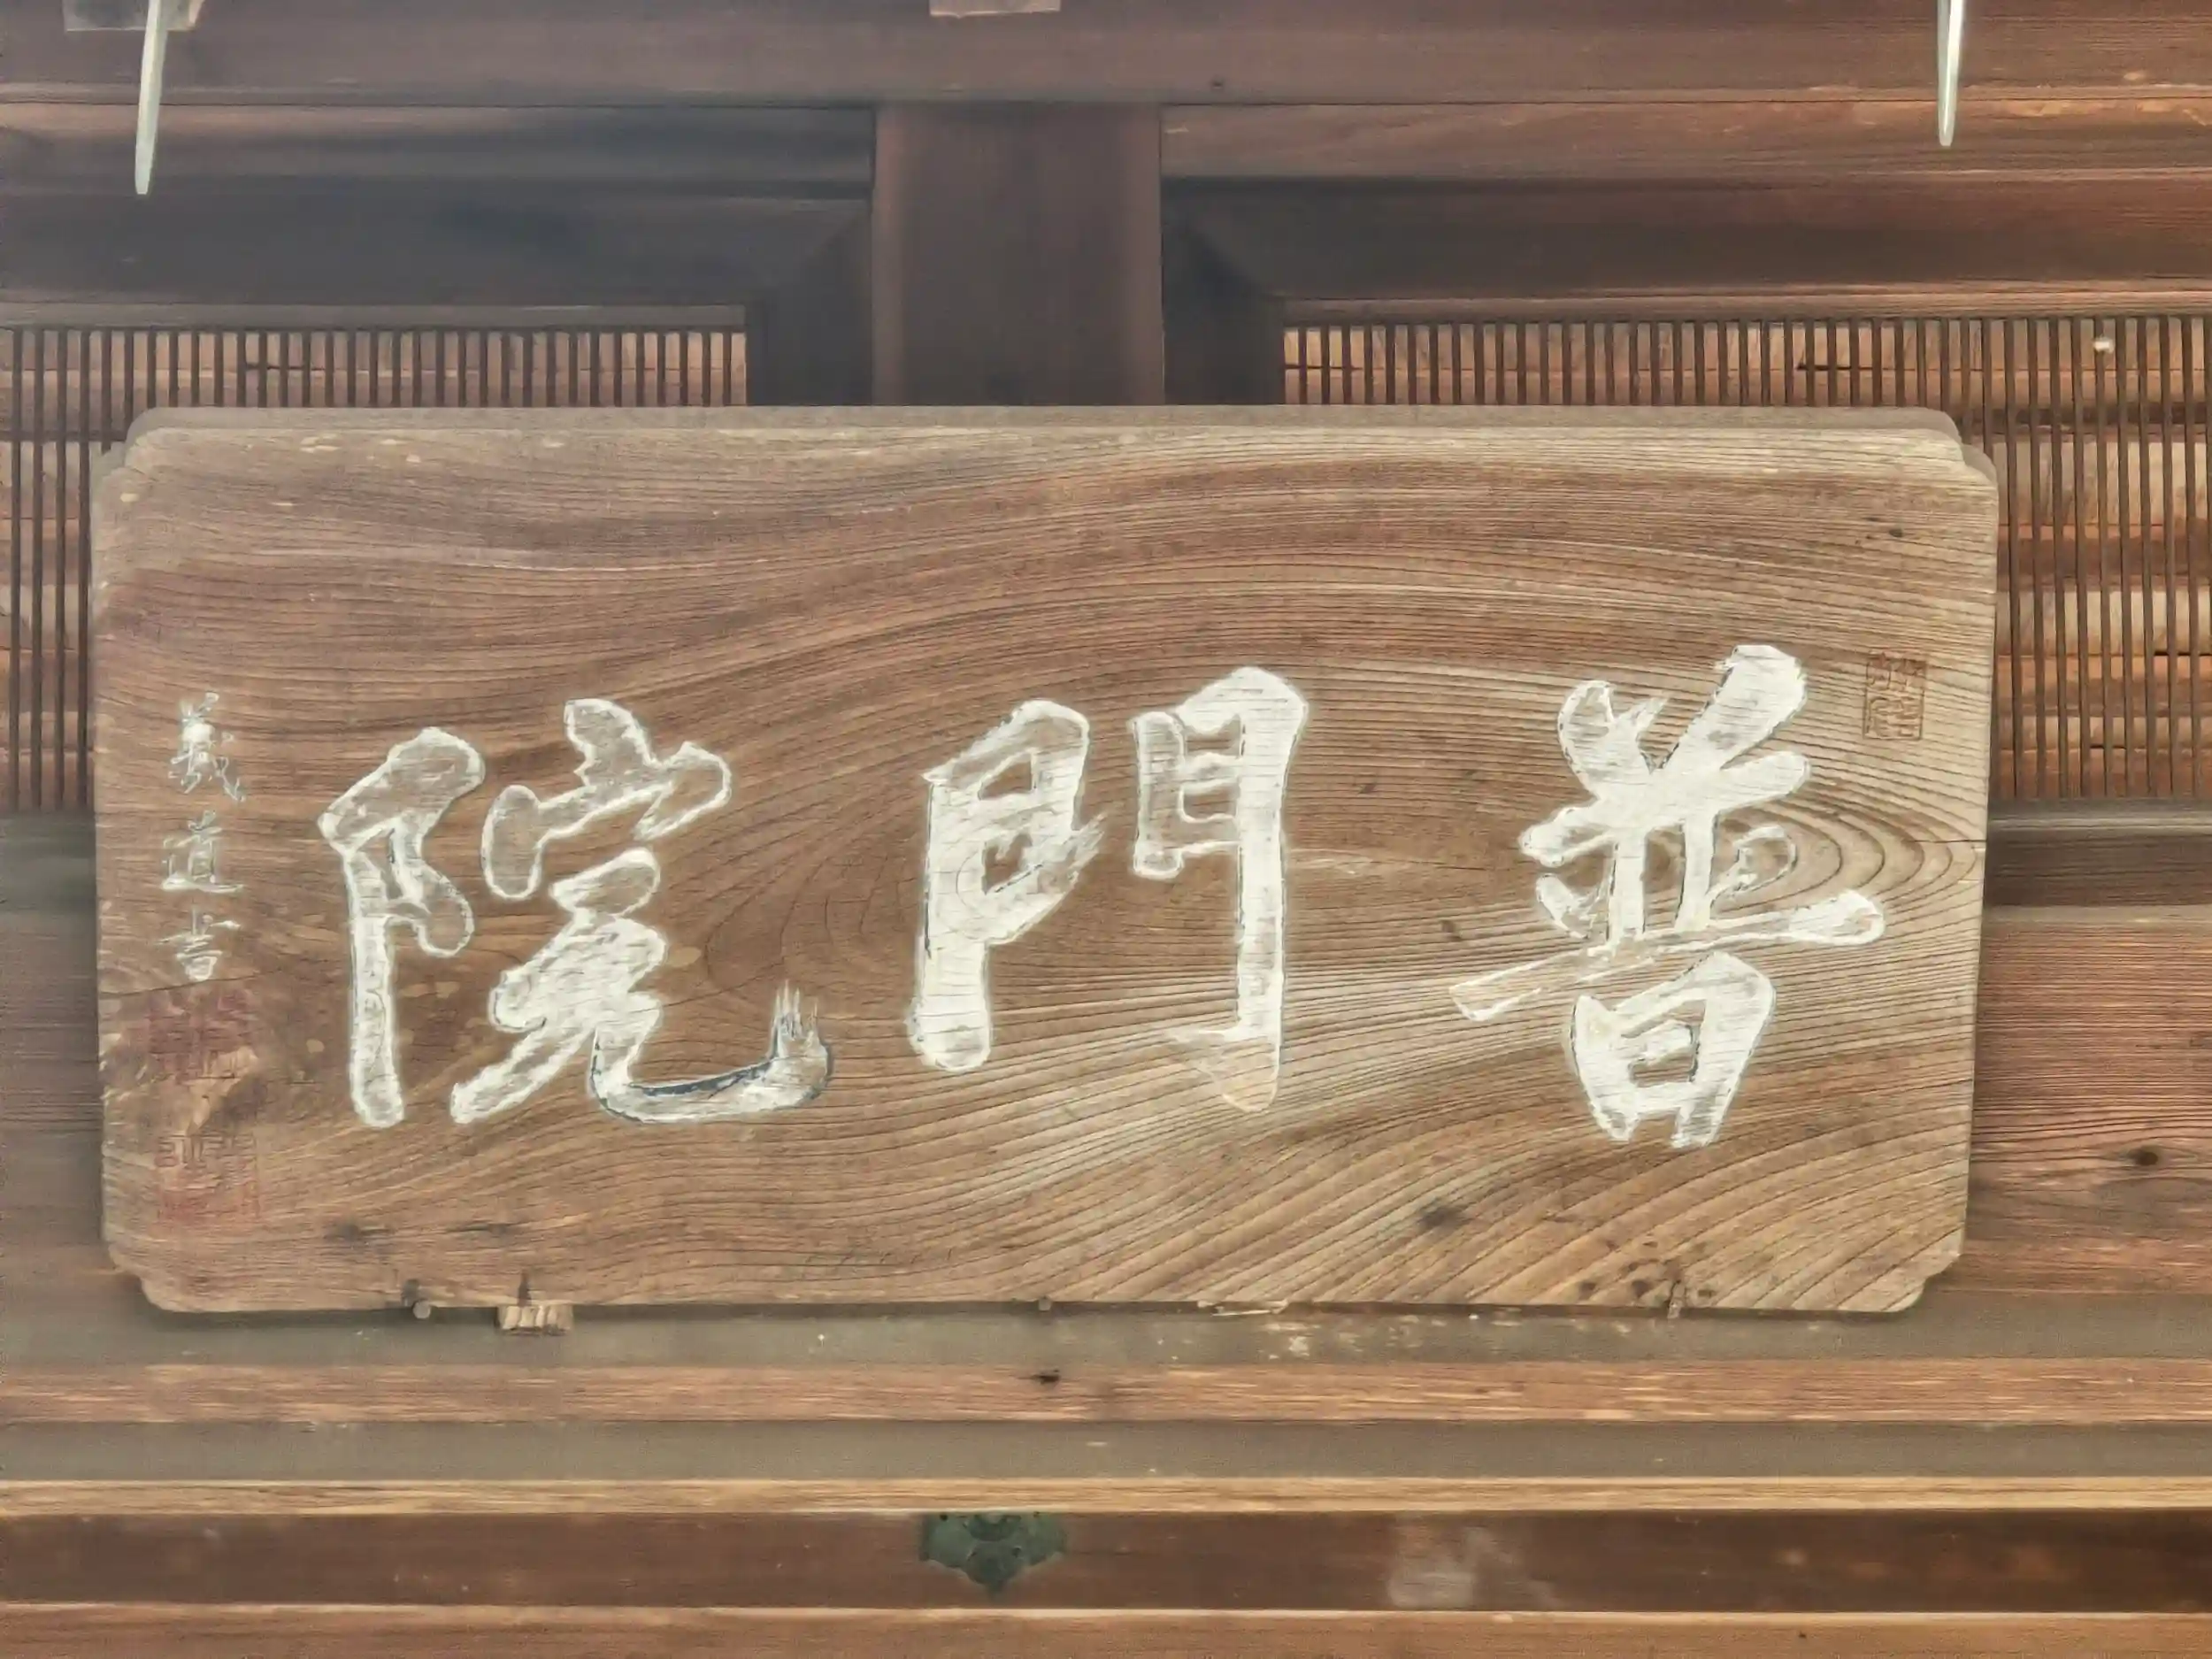 普門院
義道書